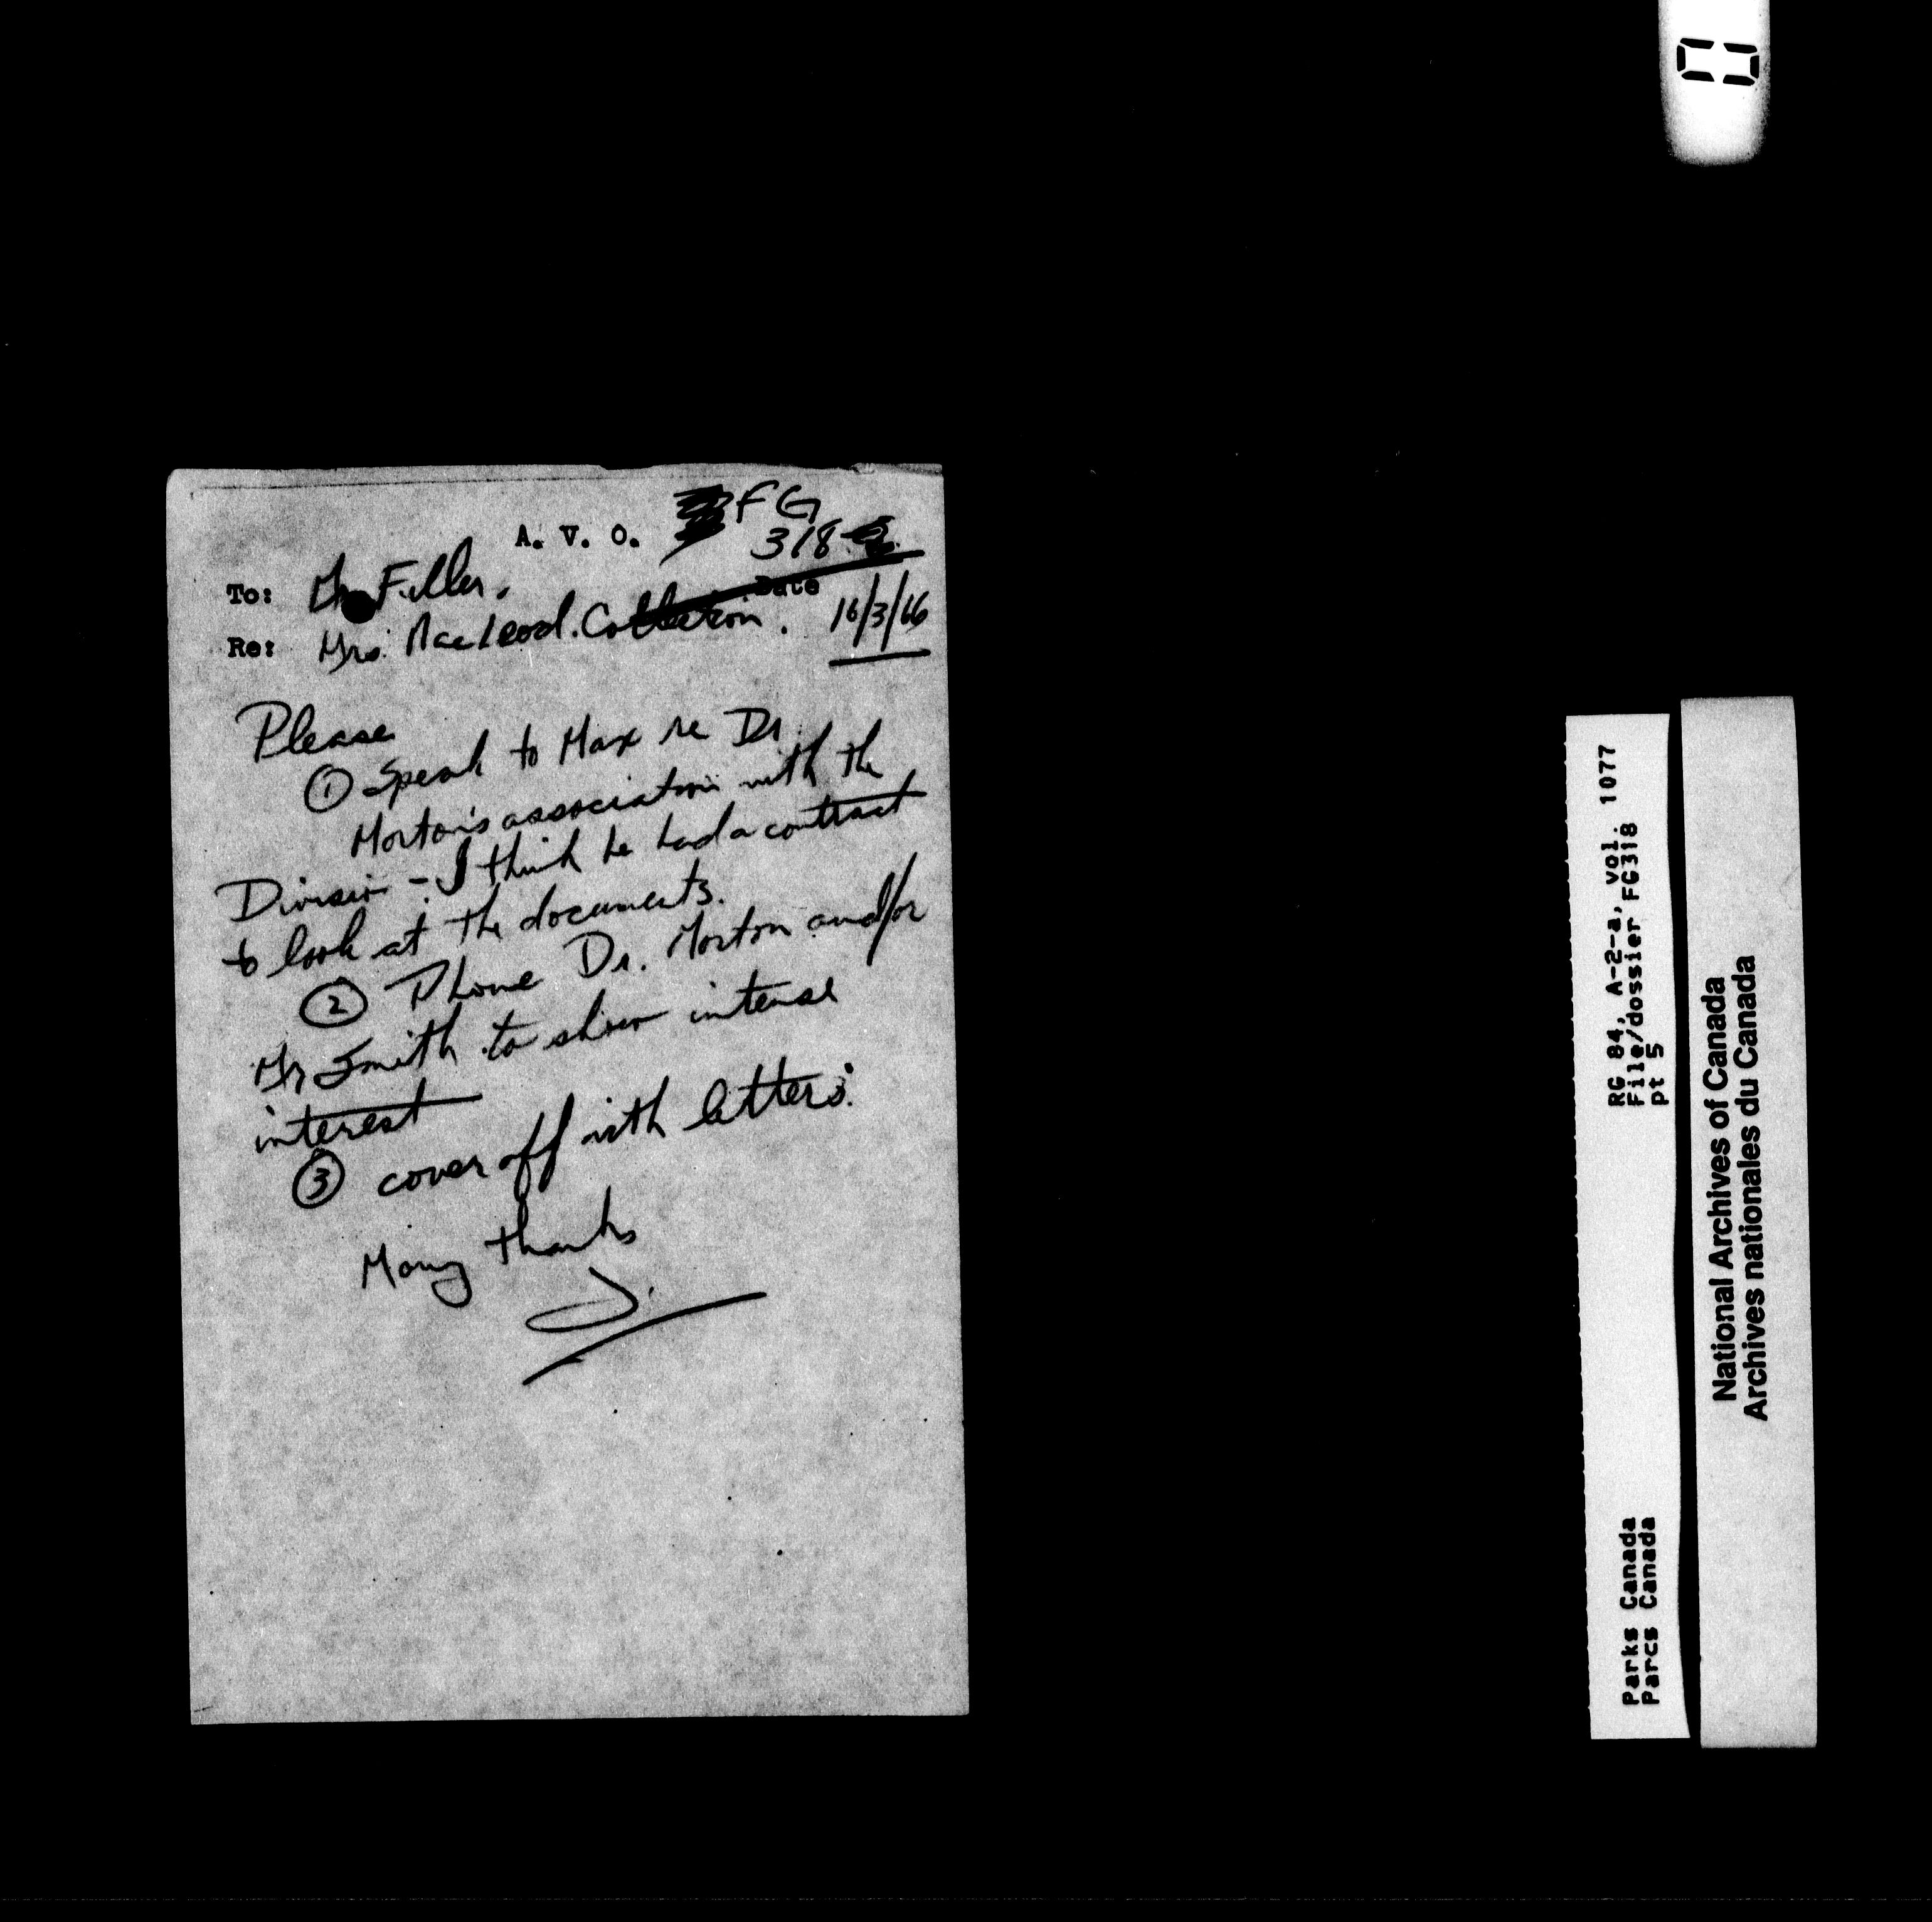 FG
A. V. O. 318
To: Mr Fuller. Date
Re: Mrs. MacLeod. Collection. 16/3/66
Please
① Speak to Max re Dr
Morton's association with the
Division - I think he had a contract
to look at the documents.
② Phone Dr. Morton and/or
Mr Smith to show intense
interest
③ cover off with letters.
Many thanks
J.
RG 84, A-2-a, vol. 1077
File/dossier FG318
pt 5
Parks Canada
Parcs Canada
National Archives of Canada
Archives nationales du Canada